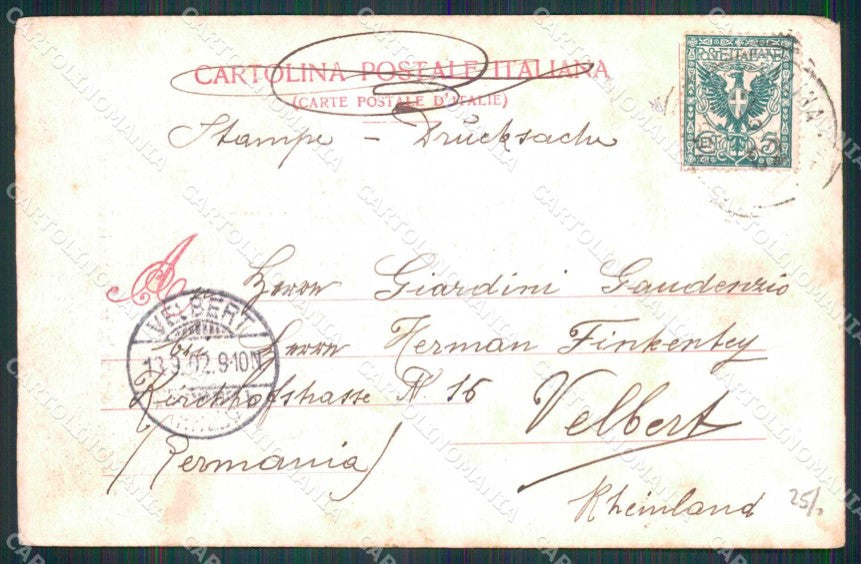 CARTOLINA POSTALE ITALIANA
(CARTE POSTALE D'ITALIE)
Stampe - Drucksache
POSTE ITALIANE
CENT 5
A
Herrn Giardini Gaudenzio
VELBERT
bei Herrn Herman Finkentey
13.9.02.9-10N
Kirchhofstrasse N. 16 Velbert
(Germania)
Rheinland
25/
CARTOLINOMANIA